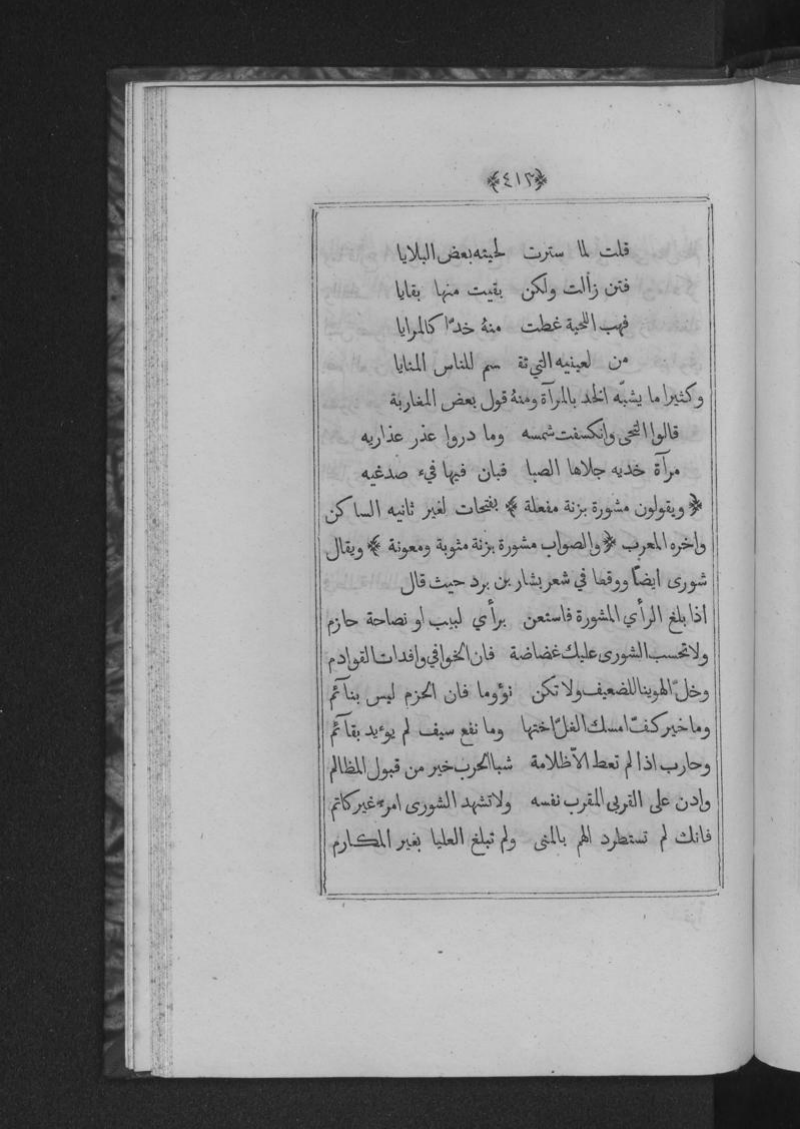 ﴿٤١٢﴾
قلت لما سترت لحيته بعض البلايا
فتن زالت ولكن بقيت منها بقايا
فهب اللحية غطت منهُ خدًّا كالمرايا
من لعينيه التي تق سم للناس المنايا
وكثيرا ما يشبّه الخد بالمرآة ومنهُ قول بعض المغاربة
قالوا التحى وانكسفت شمسه وما دروا عذر عذاريه
مرآة خديه جلاها الصبا فبان فيها فيء صدغيه
﴿ ويقولون مشورة بزنة مفعلة ﴾ بفتحات لغير ثانيه الساكن
واخره المعرب ﴿ والصواب مشورة بزنة مثوبة ومعونة ﴾ ويقال
شورى ايضًا ووقعا في شعر بشار بن برد حيث قال
اذا بلغ الرأي المشورة فاستعن برأي لبيب او نصاحة حازم
ولا تحسب الشورى عليك غضاضة فان الخوافي وافدات القوادم
وخلّ الهوينا للضعيف ولا تكن نؤوما فان الحزم ليس بنآئم
وما خير كفّ امسك الغلّ اختها وما نفع سيف لم يوءيد بقآئم
وحارب اذا لم تعط الاّ ظلامة شبا الحرب خير من قبول المظالم
وادن على القربى المقرب نفسه ولا تشهد الشورى امرءً غير كاتم
فانك لم تستطرد الهم بالمنى ولم تبلغ العليا بغير المكارم